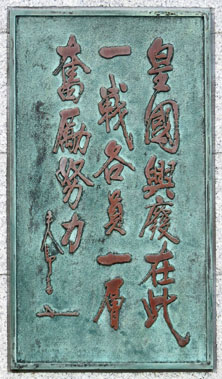 皇國興廢在此
一戰各員一層
奮励努力